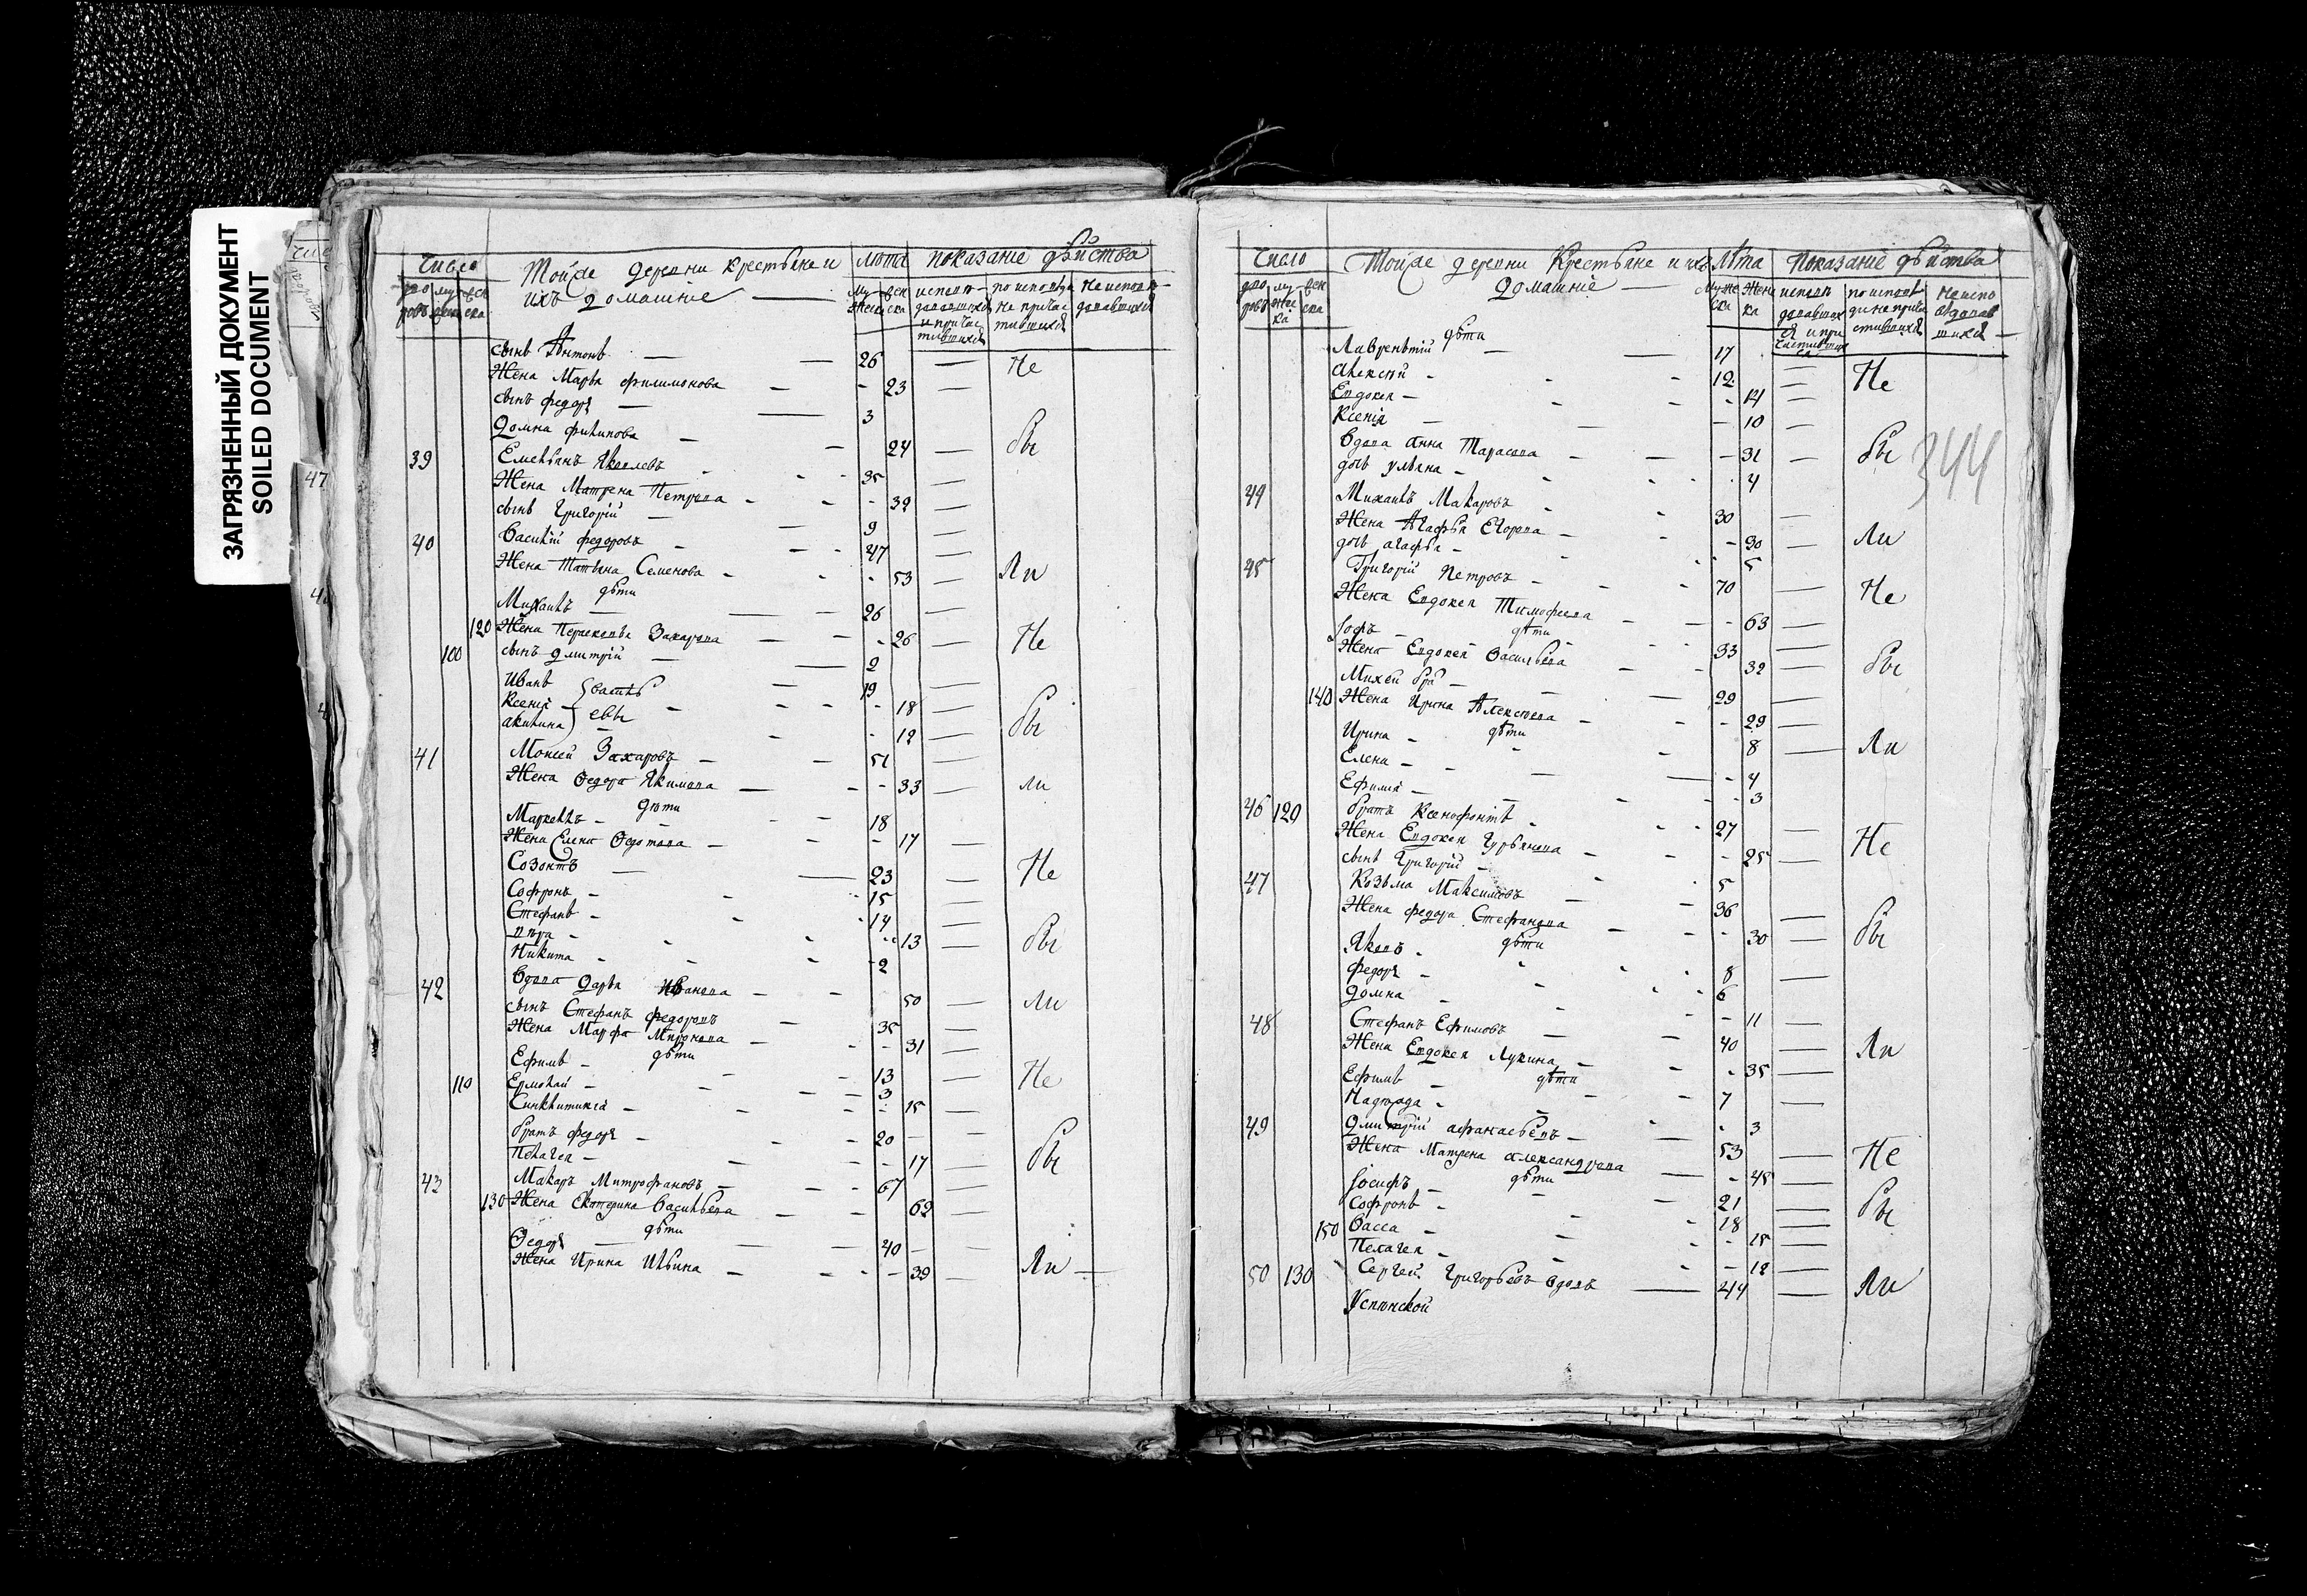 ЗАГРЯЗНЕННЫЙ ДОКУМЕНТ
SOILED DOCUMENT
47
Число Тойже деревни крестьяне и лѣта показание дѣйства
ихъ домашніе
сынъ Антонъ 26 Не
Жена Марѳа филимонова 23
сынъ федоръ 3
Домна филипова 24 бы
39 Емельянъ Яковлевъ 35
Жена Матрена Петрова 32
сынъ Григорій 9
40 Василій федоровъ 47
Жена Татьяна Семенова 53 Ли
дѣти
Михаилъ 26
120 Жена Парасковья Захарова 26 Не
100 сынъ Дмитрій 2
Иванъ 19
Ксенія васильевы 18
акилина 12 бы
41 Моисей Захаровъ 51
Жена Ѳедора Якимова 33 ли
дѣти
Маркелъ 18
Жена Елена Ѳедотова 17
Созонтъ 23 Не
Софронъ 15
Стефанъ 14
13 бы
Никита 2
42 Вдова Дарья Иванова 50 ли
сынъ Стефанъ федоровъ 35
Жена Марфа Миронова 31
дѣти
Ефимъ 13 Не
110 Ермолай 3
Синклитикіа 15
братъ федоръ 20
Пелагея 17 бы
43 Макаръ Митрофановъ 67
130 Жена Екатерина Васильева 62
дѣти
Ѳедоръ 40
Жена Ирина Ильина 39 Ли
Число Тойже деревни Крестьяне и ихъ Лѣта Показание дѣйства
домашніе
дѣти
Лаврентій 17
алексѣй 12 Не
Евдокея 14
Ксенія 10
Вдова анна Тарасова 31 бы
344
дочь ульяна 4
44 Михаилъ Макаровъ 30
Жена Агафья Егорова 30 Ли
дочь агафья 5
45 Григорій Петровъ 70 Не
Жена Евдокея Тимофеева 63
дѣти
33
Жена Евдокея Васильева 32 бы
Михей бра 29
140 Жена Ирина Алексѣева 29
дѣти
Ирина 8 Ли
Елена 4
Ефимия 3
46 129 братъ Ксенофонтъ 27
Жена Евдокея Гурьянова 25 Не
сынъ Григорій 5
47 Козьма Максимовъ 36
Жена федора Стефанова 30 бы
дѣти
Яковъ 8
федоръ 6
домна 11
48 Стефанъ Ефимовъ 40
Жена Евдокея Лукина 35 Ли
дѣти
Ефимъ 7
Надежда 3
49 Дмитрій афанасьевъ 53
Жена Матрена александрова 45 Не
дѣти
Іосифъ 21
Софронъ 18 бы
150 Васса 15
Пелагея 12
50 130 Сергей Григорьевъ вдовъ 44 Ли
Успѣнской